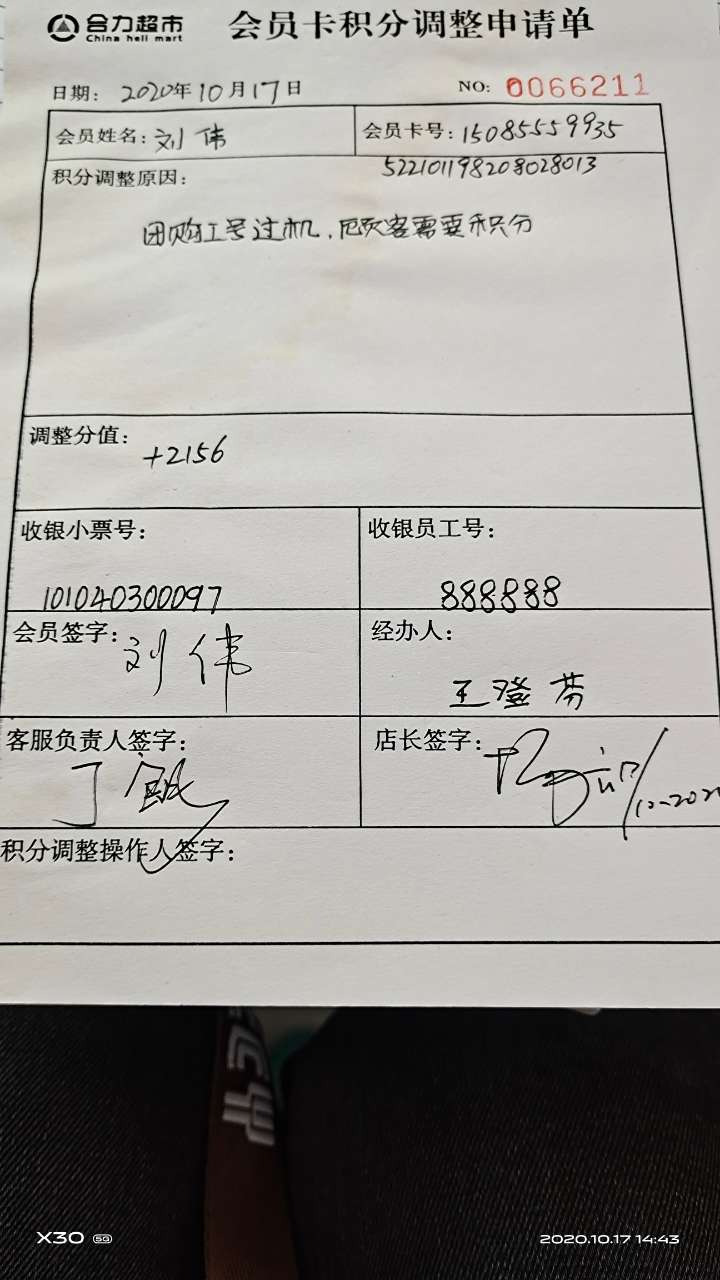 合力超市
China heli mart
会员卡积分调整申请单
日期: 2020年10月17日
NO: 0066211
会员姓名: 刘伟
会员卡号: 15085559935
522101198208028013
积分调整原因:
团购工号过机,因顾客需要积分
调整分值:
+2156
收银小票号:
101040300097
收银员工号:
888888
会员签字: 刘伟
经办人:
王登芬
客服负责人签字:
丁
店长签字:
积分调整操作人签字:
X30 5G
2020.10.17 14:43